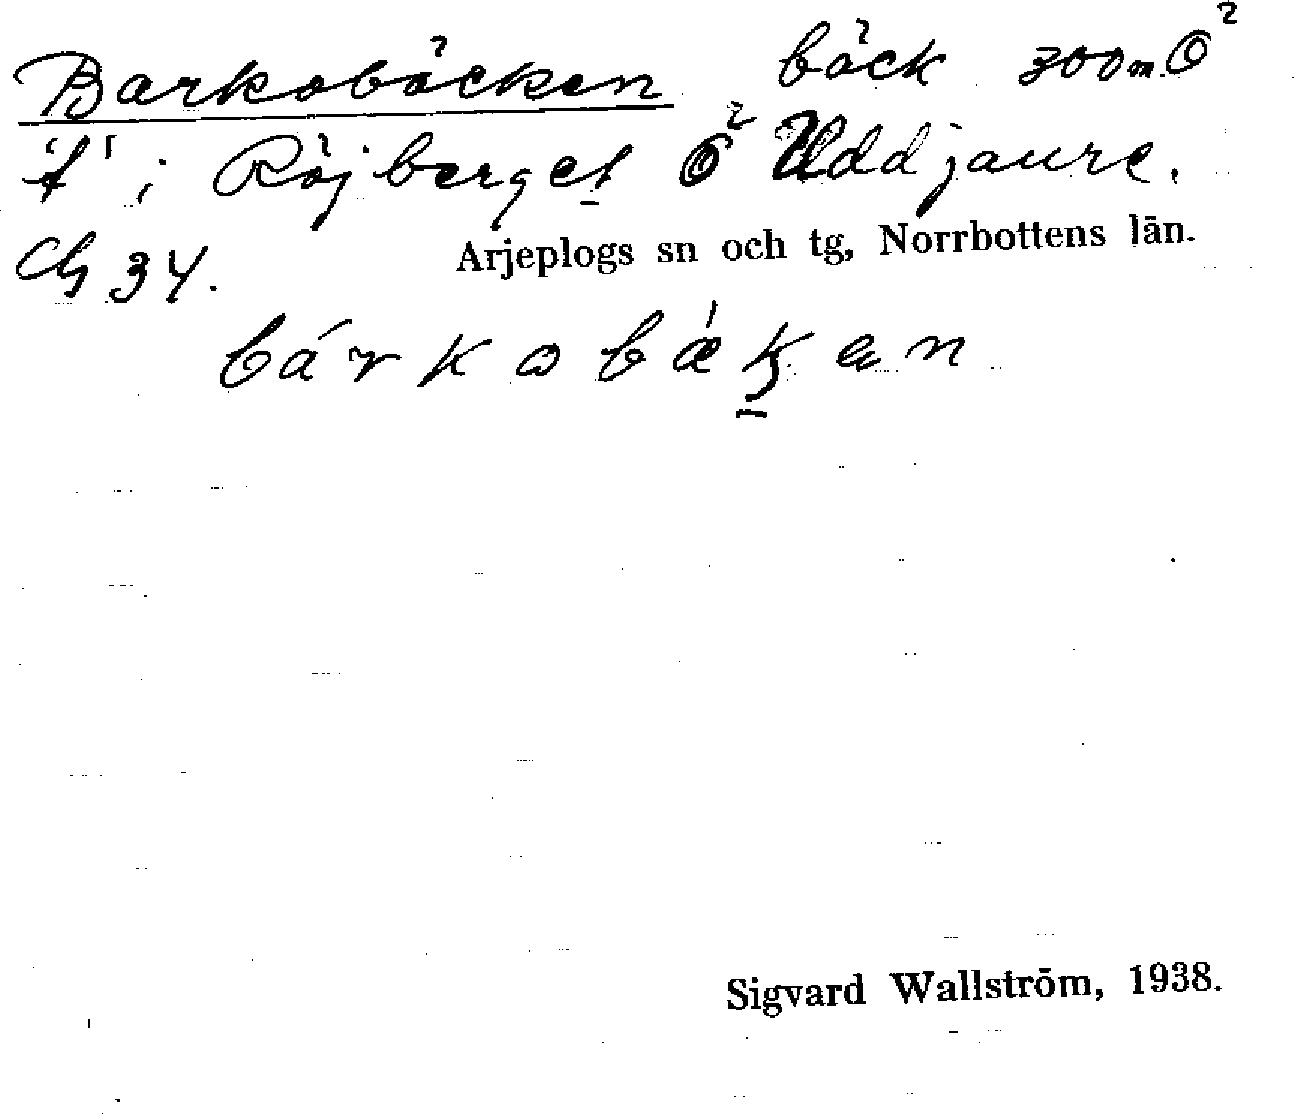 Barkobäcken bäck 300m Ö²
"A" i Röjberget Ö² Uddjaure.
Ch 34. Arjeplogs sn och tg, Norrbottens län.
bárkobǽk̠en
Sigvard Wallström, 1938.